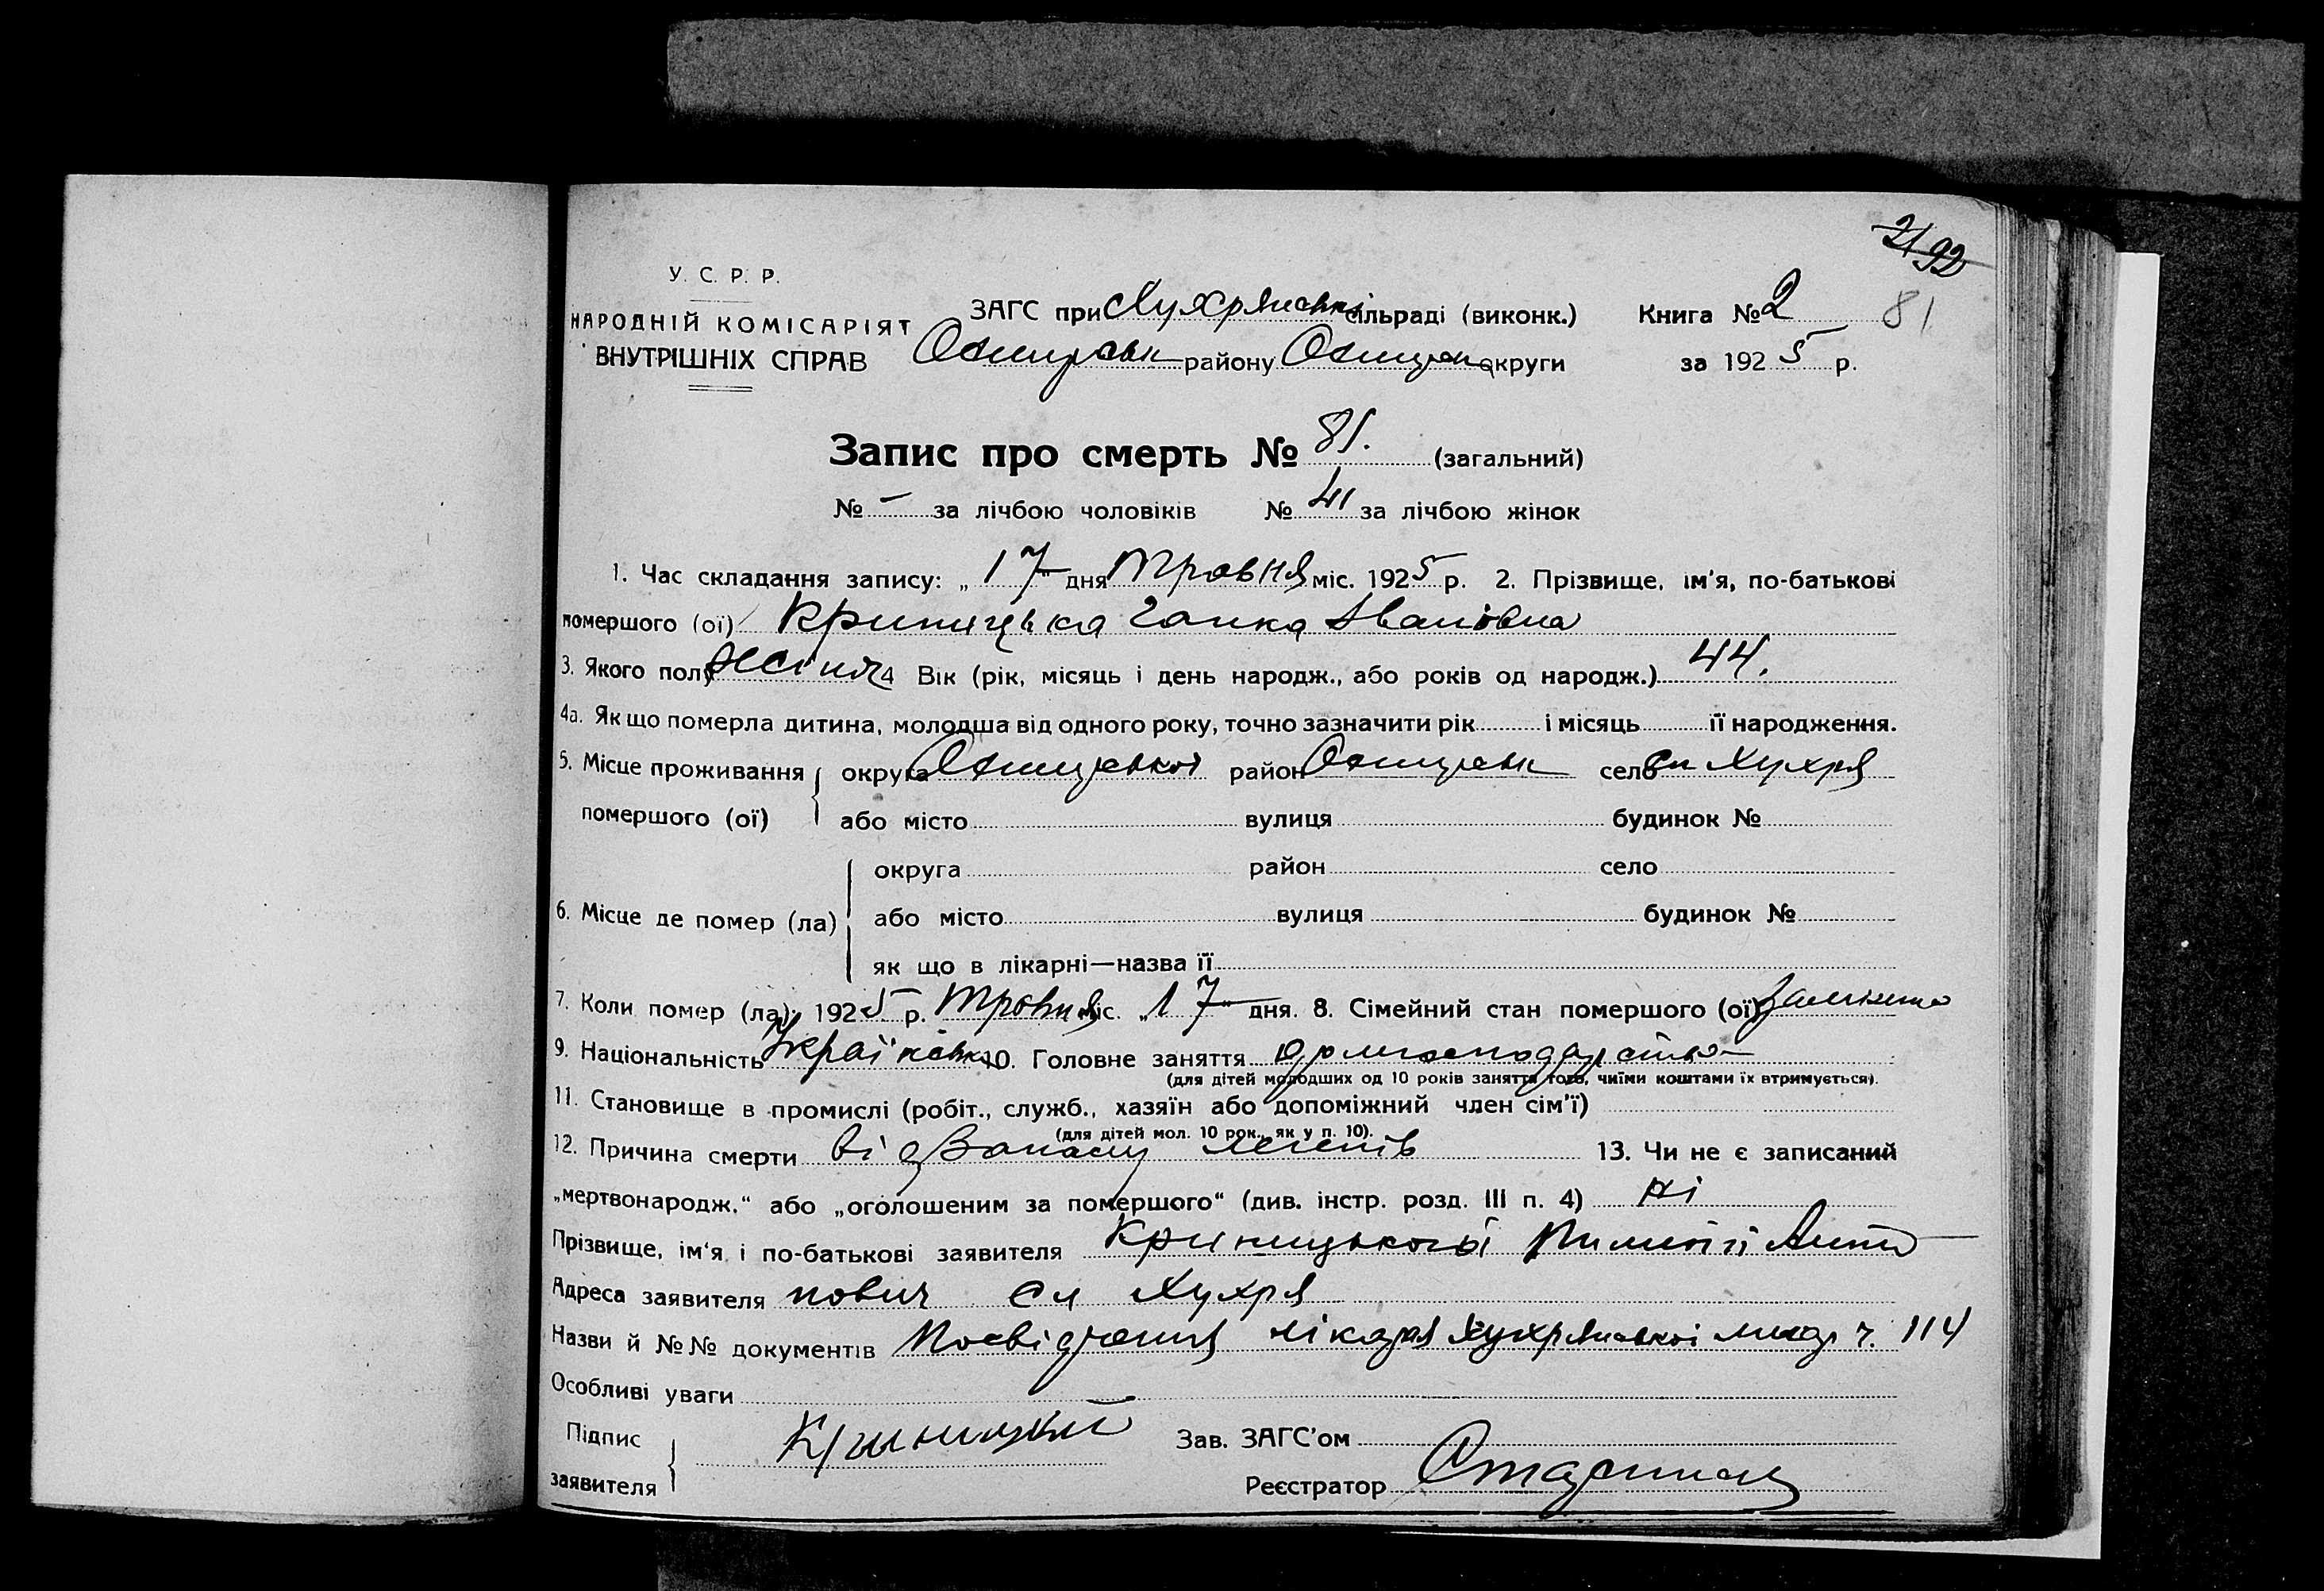 92
У. С. Р. Р.
НАРОДНІЙ КОМІСАРІЯТ
ВНУТРІШНІХ СПРАВ
ЗАГС при Хухрянській сільраді (виконк.) Книга № 2 81
району округи за 192 5 р.
Запис про смерть № 81. (загальний)
№ – за лічбою чоловіків № 41 за лічбою жінок
1. Час складання запису: „ 17 " дня травня міс. 192 5 р. 2. Прізвище, ім'я, по-батькові
помершого (ої) Криницька Ганка Івановна
3. Якого полу жіноч 4 Вік (рік, місяць і день народж., або років од народж.) 44.
4а. Як що померла дитина, молодша від одного року, точно зазначити рік і місяць її народження.
5. Місце проживання округа район село сл Хухря
помершого (ої) або місто вулиця будинок №
округа район село
6. Місце де помер (ла) або місто вулиця будинок №
як що в лікарні—назва її
7. Коли помер (ла): 192 5 р. травня міс. „ 17 " дня. 8. Сімейний стан помершого (ої) заміжня
9. Національність Українка 10. Головне заняття
(для дітей молодших од 10 років заняття того, чиїми коштами їх втримується).
11. Становище в промислі (робіт., служб., хазяїн або допоміжний член сім'ї)
(для дітей мол. 10 рок., як у п. 10).
12. Причина смерти від Запалу легенів 13. Чи не є записаний
„мертвонародж." або „оголошеним за помершого" (див. інстр. розд. III п. 4) ні
Прізвище, ім'я і по-батькові заявителя
Адреса заявителя пович сл Хухря
Назви й №№ документів Посвідчення лікаря Хухрянської ч. 114
Особливі уваги
Підпис Криницкий Зав. ЗАГС'ом
заявителя Реєстратор